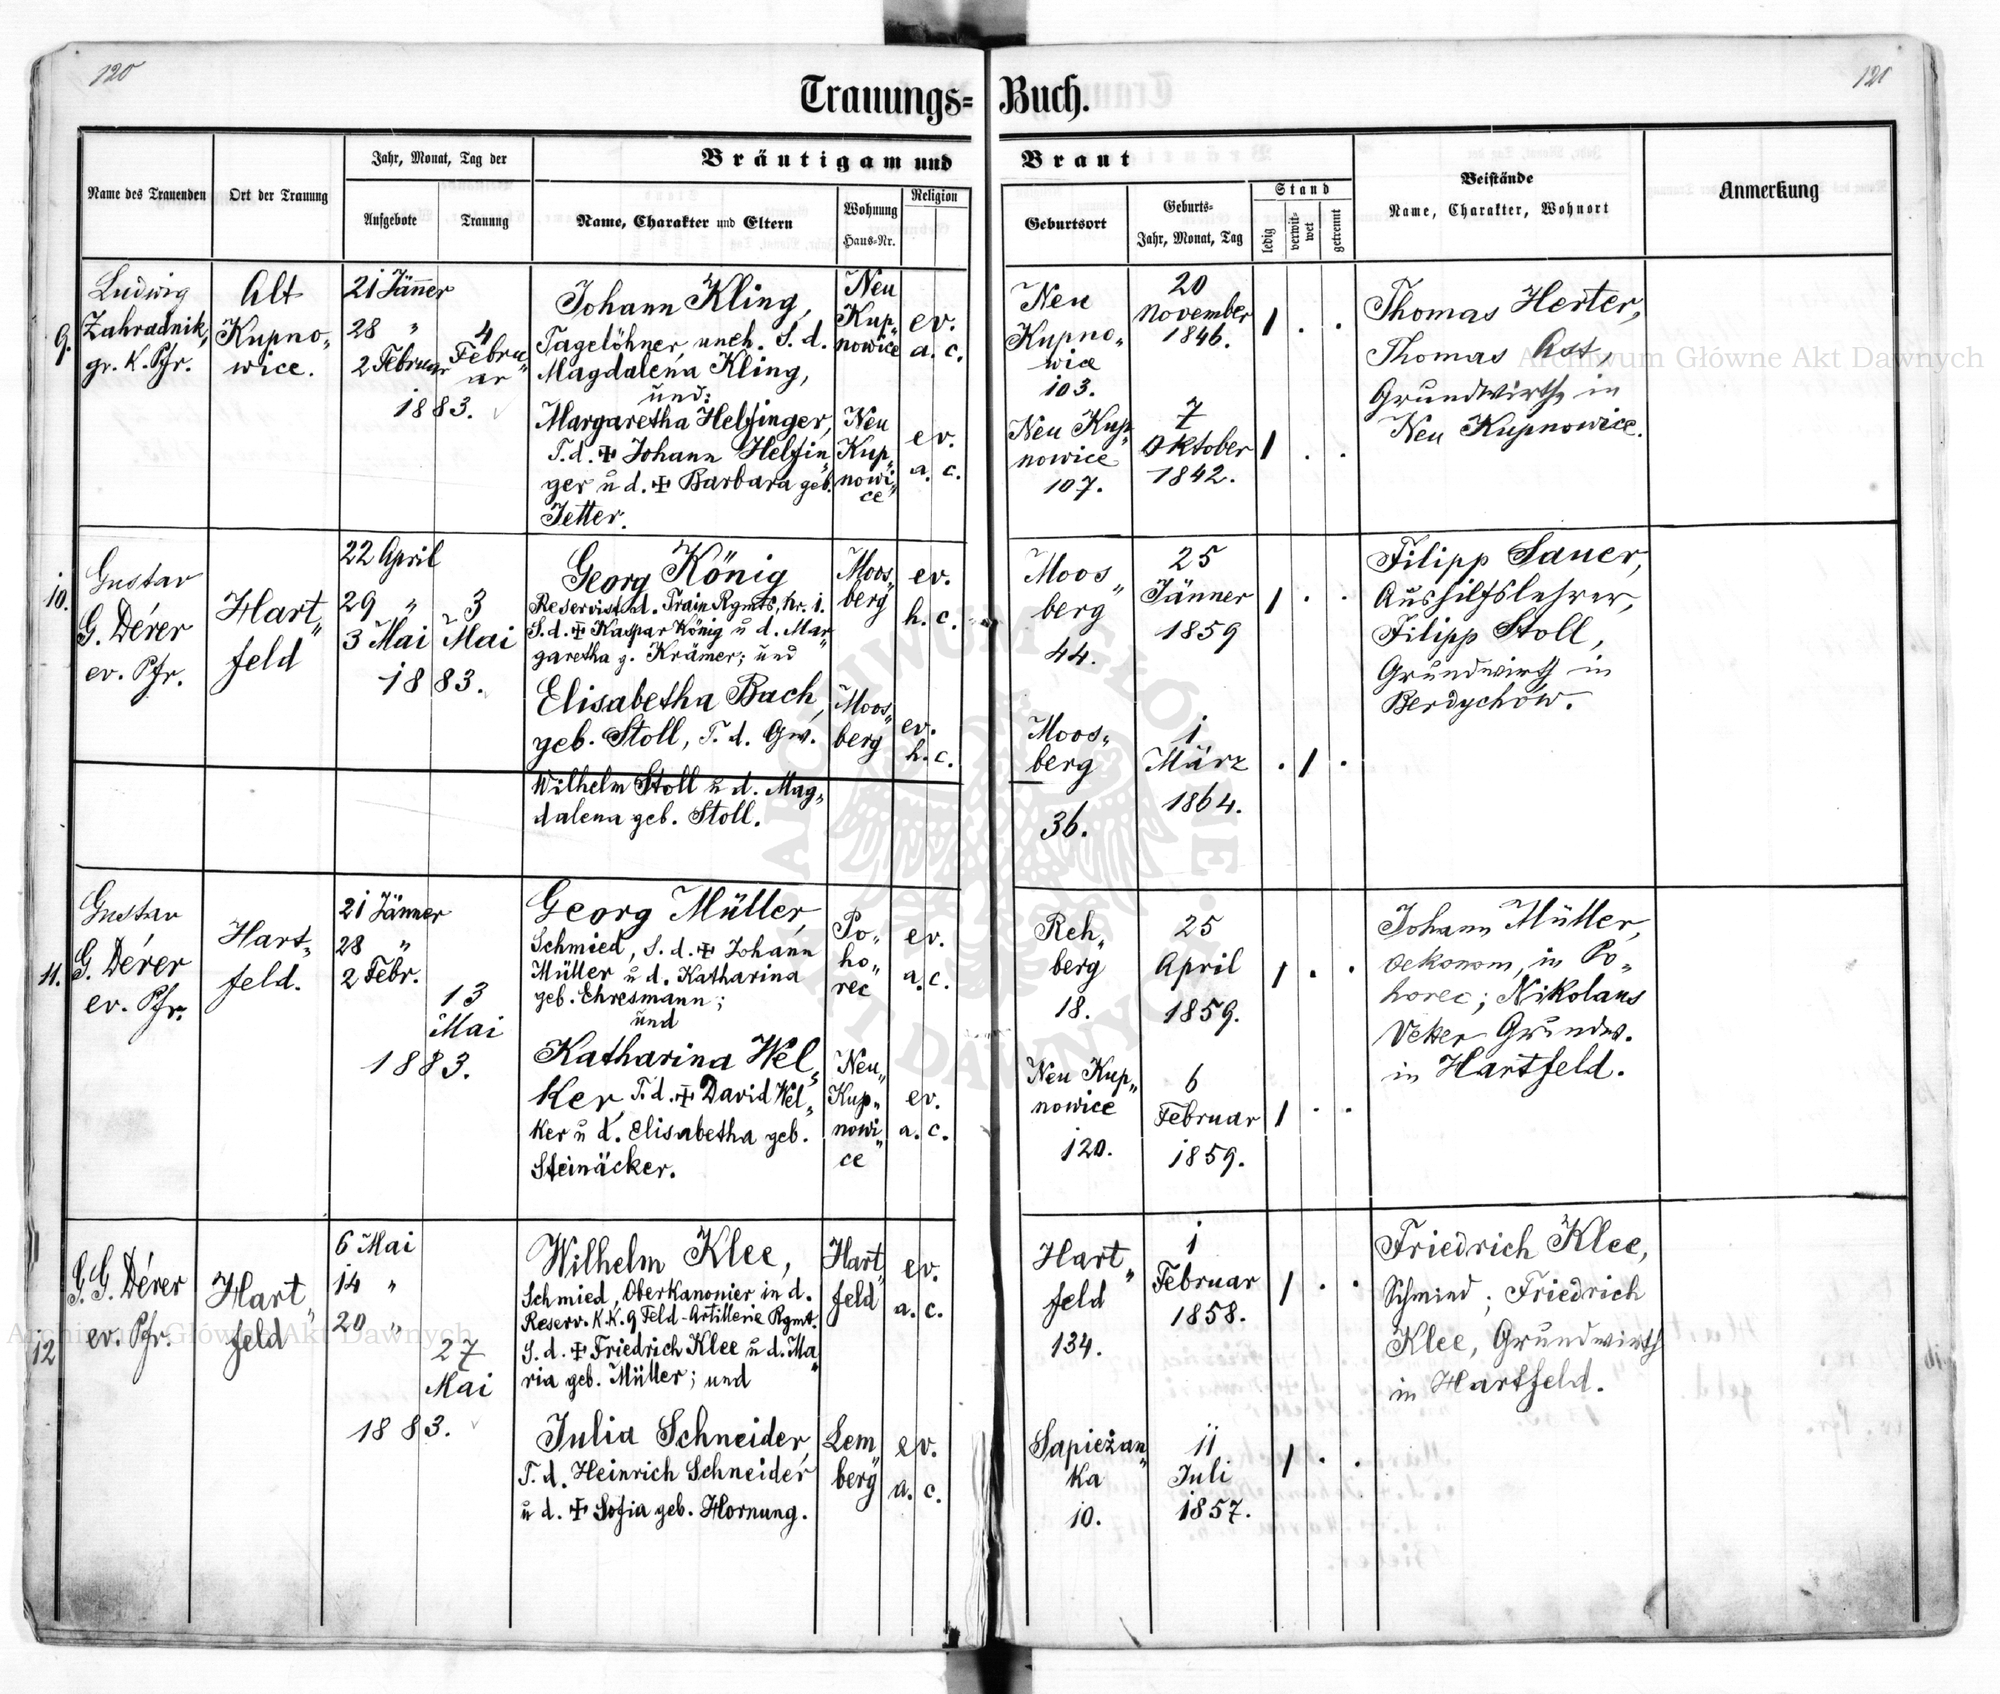 120
121
Trauungs= Buch.
Name des Trauenden
Ort der Trauung
Jahr, Monat, Tag der
Aufgebote
Trauung
Bräutigam und Braut
Name, Charakter und Eltern
Wohnung
Haus=Nr.
Religion
Geburtsort
Geburts=
Jahr, Monat, Tag
Stand
ledig
verwit=
wet
getrennt
Beistände
Name, Charakter, Wohnort
Anmerkung
9.
Ludwig
Zahradnik,
gr. K. Pfr.
Alt
Kupno„
wice.
21 Jänner
28 „
2 Februar
4
Febru„
ar
1883.
Johann Kling,
Tagelöhner, uneh. S. d.
Magdalena Kling,
und:
Margaretha Helfinger,
T. d. ✠ Johann Helfin„
ger u d. ✠ Barbara geb.
Jetter.
Neu
Kup„
nowice
ev.
a. c.
Neu
Kup„
nowi„
ce
ev.
a. c.
Neu
Kupno„
wice
103.
20
November
1846.
1 . .
Neu Kup„
nowice
107.
7
Oktober
1842.
1 . .
Thomas Herter,
Thomas Ast,
Grundwirthe in
Neu Kupnowice.
10.
Gustav
G. Dérer
ev. Pfr.
Hart„
feld
22 April
29 „
3 Mai
3
Mai
1883.
Georg König
Reservist d. Train Rgmts, Nr. 1.
S. d. ✠ Kaspar König u d. Mar„
garetha g. Krämer; und
Elisabetha Bach,
geb. Stoll, T. d. Gw.
Wilhelm Stoll u d. Mag„
dalena geb. Stoll.
Moos„
berg
ev.
h. c.
Moos„
berg
ev.
h. c.
Moos„
berg
44.
25
Jänner
1859
1 . .
Moos„
berg
36.
1
März
1864.
. 1 .
Filipp Sauer,
Aushilfslehrer,
Filipp Stoll,
Grundwirth in
Berdychów.
11.
Gustav
G. Dérer
ev. Pfr.
Hart„
feld.
21 Jänner
28 „
2 Febr.
13
Mai
1883.
Georg Müller,
Schmied, S. d. ✠ Johann
Müller u d. Katharina
geb. Ehresmann;
und
Katharina Wel„
ker T. d. ✠ David Wel„
ker u d. Elisabetha geb.
Steinäcker.
Po„
ho„
rec
ev.
a. c.
Neu„
Kup„
nowi„
ce
ev.
a. c.
Reh„
berg
18.
25
April
1859.
1 . .
Neu Kup„
nowice
120.
6
Februar
1859.
1 . .
Johann Müller,
Oekonom, in Po„
horec; Nikolaus
Vetter Grundw.
in Hartfeld.
12
G. G. Dérer
ev. Pfr.
Hart„
feld
6 Mai
14 „
20 „
27
Mai
1883.
Wilhelm Klee,
Schmied, Oberkanonier in d.
Reserv. K. K. 9 Feld-Artillerie Rgmt.
S. d. ✠ Friedrich Klee u d. Ma„
ria geb. Müller; und
Julia Schneider,
T. d. Heinrich Schneider
u d. ✠ Sofia geb. Hornung.
Hart„
feld
ev.
a. c.
Lem„
berg
ev.
a. c.
Hart„
feld
134.
1
Februar
1858.
1 . .
Sapiežan„
ka
10.
11
Juli
1857.
1 . .
Friedrich Klee,
Schmied; Friedrich
Klee, Grundwirth
in Hartfeld.
Archiwum Główne Akt Dawnych
Archiwum Główne Akt Dawnych
ARCHIWUM GŁÓWNE AKT DAWNYCH